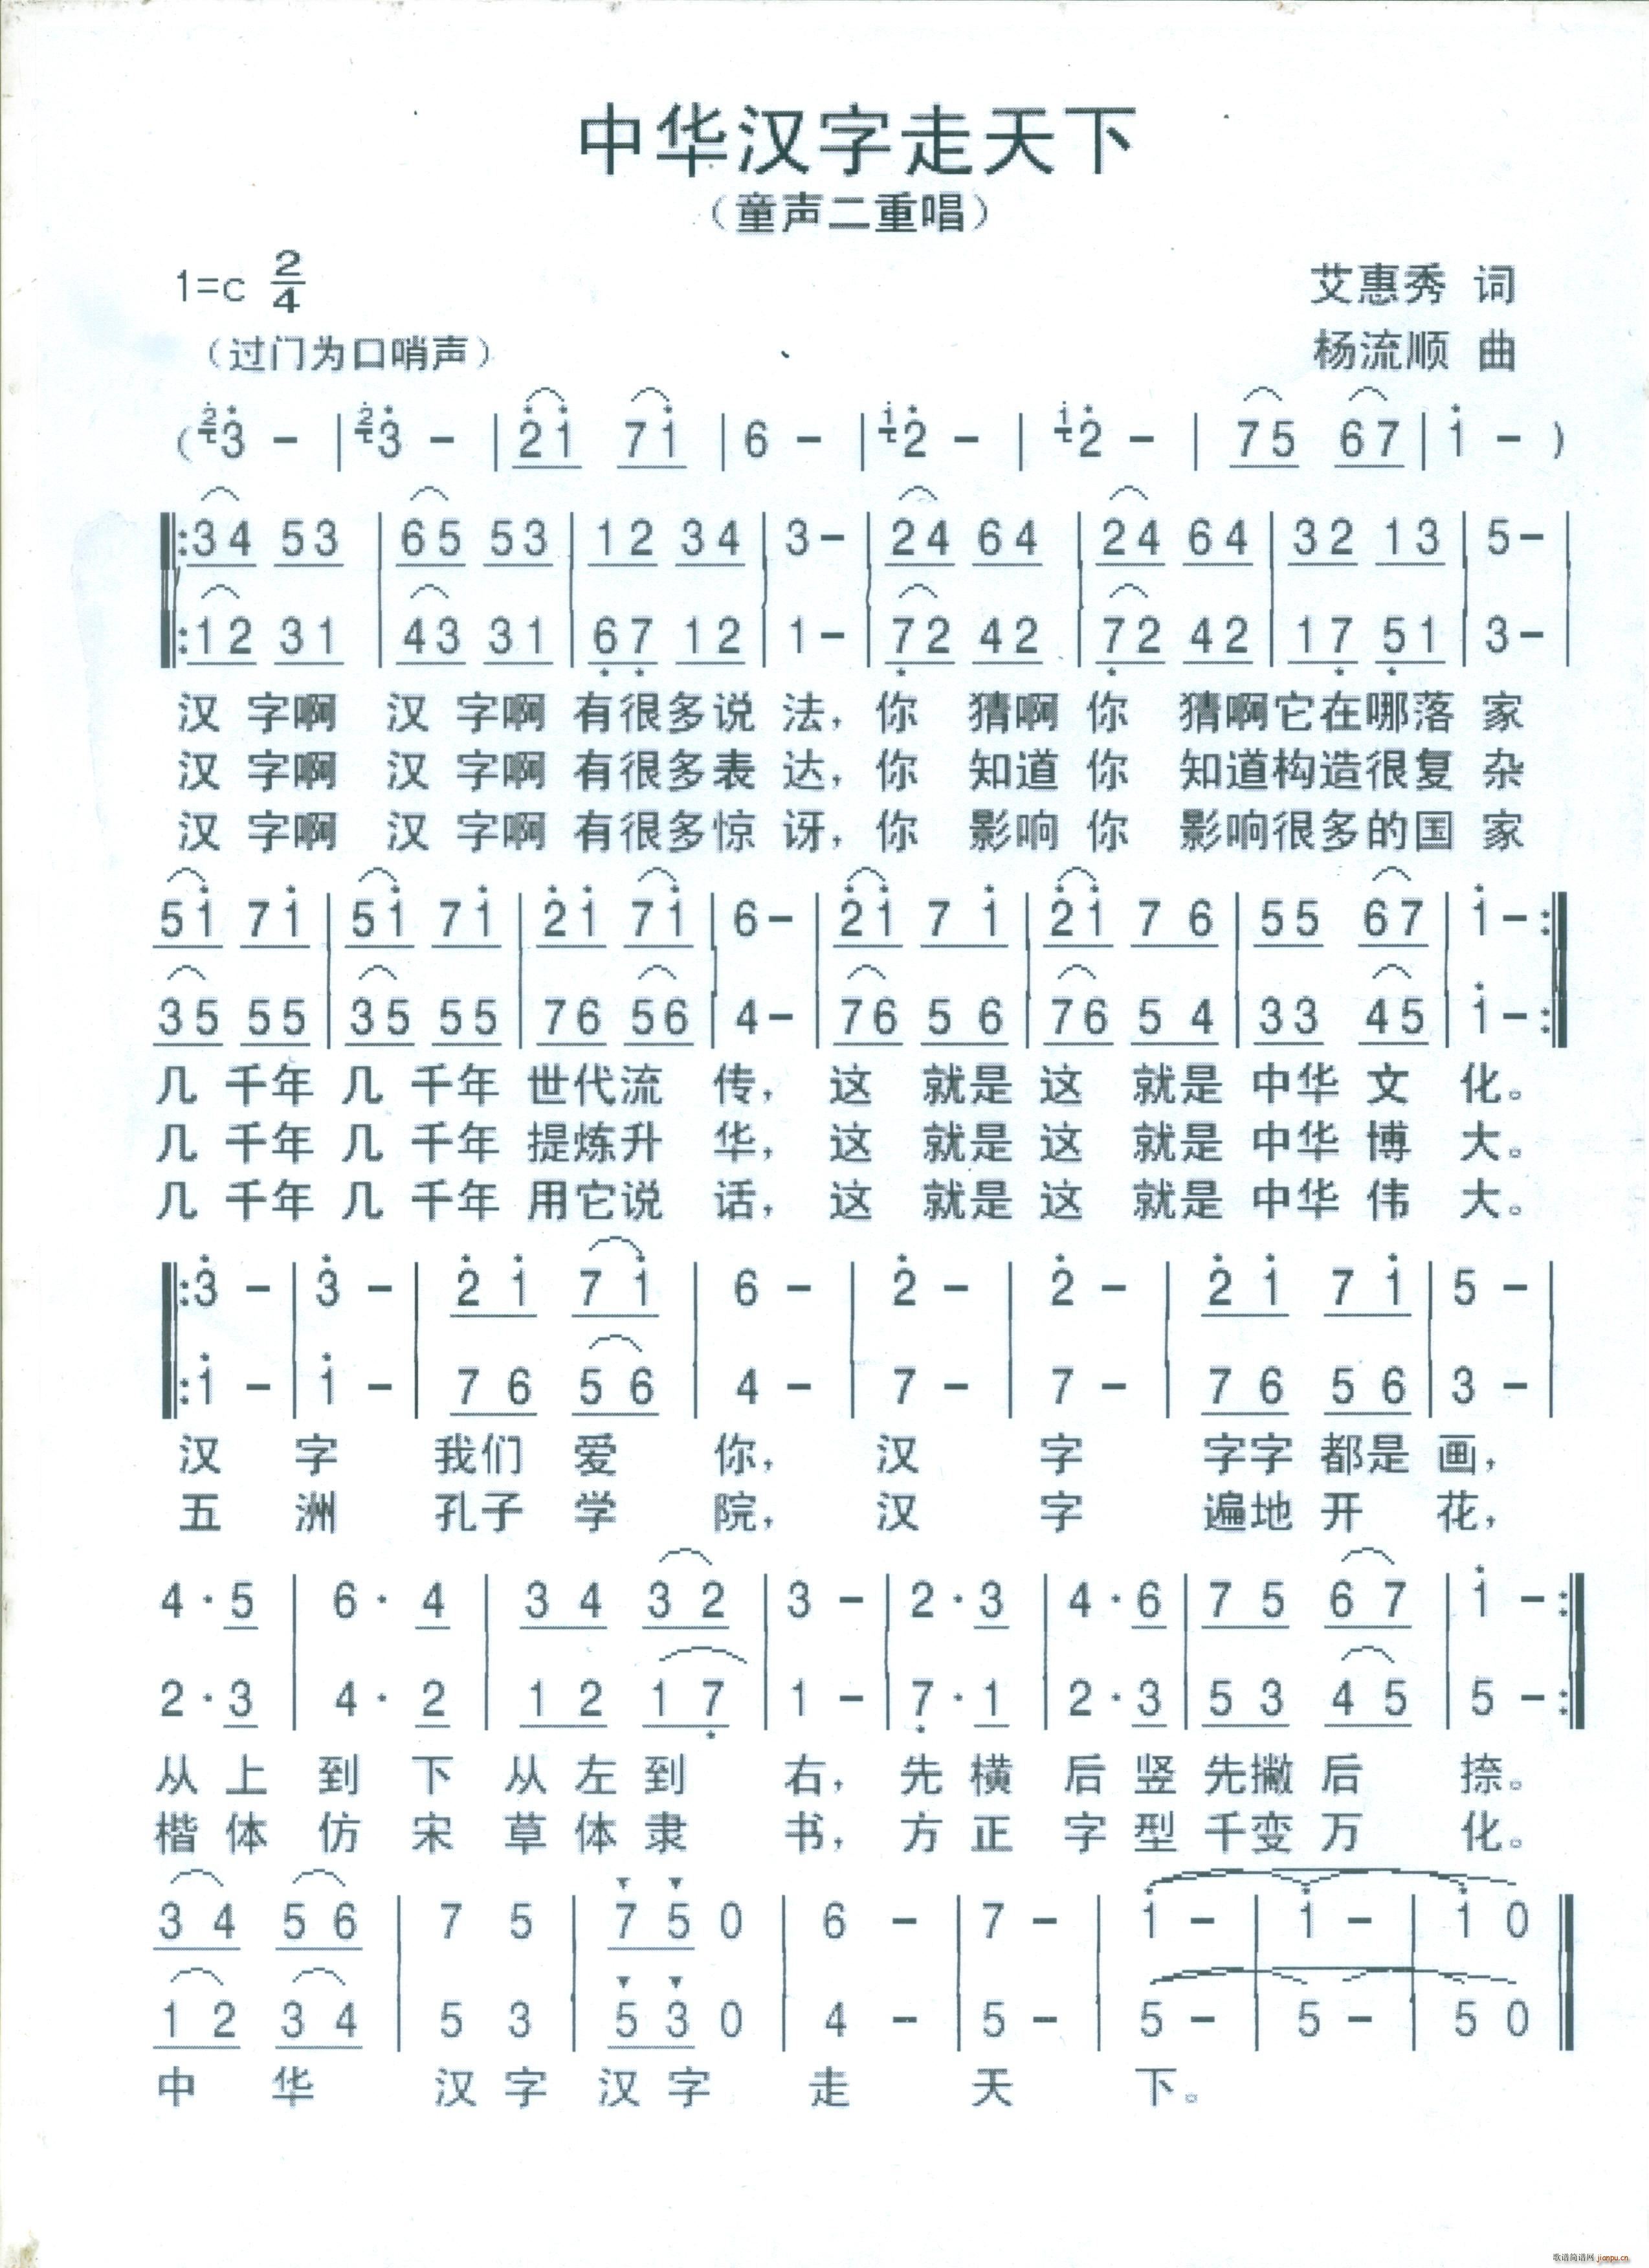 中华汉字走天下
（童声二重唱）
1=c 2/4
艾惠秀 词
（过门为口哨声）
杨流顺 曲
( 2̇3̇ - | 2̇3̇ - | 2̇1̇ 71̇ | 6 - | 1̇2̇ - | 1̇2̇ - | 75 67 | 1̇ - )
‖:34 53 | 65 53 | 12 34 | 3 - | 24 64 | 24 64 | 32 13 | 5 - |
‖:12 31 | 43 31 | 6̣7̣ 12 | 1 - | 7̣2 42 | 7̣2 42 | 17̣ 5̣1 | 3 - |
汉 字啊 汉 字啊 有很多说 法，你 猜啊 你 猜啊它在哪落 家
汉 字啊 汉 字啊 有很多表 达，你 知道 你 知道构造很复 杂
汉 字啊 汉 字啊 有很多惊 讶，你 影响 你 影响很多的国 家
51̇ 71̇ | 51̇ 71̇ | 2̇1̇ 71̇ | 6 - | 2̇1̇ 7 1̇ | 2̇1̇ 7 6 | 55 67 | 1̇ - :‖
35 55 | 35 55 | 76 56 | 4 - | 76 5 6 | 76 5 4 | 33 45 | 1̇ - :‖
几 千年 几 千年 世代流 传， 这 就是 这 就是 中华 文 化。
几 千年 几 千年 提炼升 华， 这 就是 这 就是 中华 博 大。
几 千年 几 千年 用它说 话， 这 就是 这 就是 中华 伟 大。
‖:3̇ - | 3̇ - | 2̇ 1̇ 7 1̇ | 6 - | 2̇ - | 2̇ - | 2̇ 1̇ 7 1̇ | 5 - |
‖:1̇ - | 1̇ - | 7 6 5 6 | 4 - | 7 - | 7 - | 7 6 5 6 | 3 - |
汉 字 我们 爱 你， 汉 字 字字 都是 画，
五 洲 孔子 学 院， 汉 字 遍地 开 花，
4 · 5 | 6 · 4 | 3 4 3 2 | 3 - | 2 · 3 | 4 · 6 | 7 5 6 7 | 1̇ - :‖
2 · 3 | 4 · 2 | 1 2 1 7̣ | 1 - | 7̣ · 1 | 2 · 3 | 5 3 4 5 | 5 - :‖
从 上 到 下 从 左 到 右， 先 横 后 竖 先撇 后 捺。
楷 体 仿 宋 草 体 隶 书， 方 正 字 型 千变 万 化。
3 4 5 6 | 7 5 | 7 5 0 | 6 - | 7 - | 1̇ - | 1̇ - | 1̇ 0 ‖
1 2 3 4 | 5 3 | 5 3 0 | 4 - | 5 - | 5 - | 5 - | 5 0 ‖
中 华 汉 字 汉 字 走 天 下。
歌谱简谱网 jianpu.cn